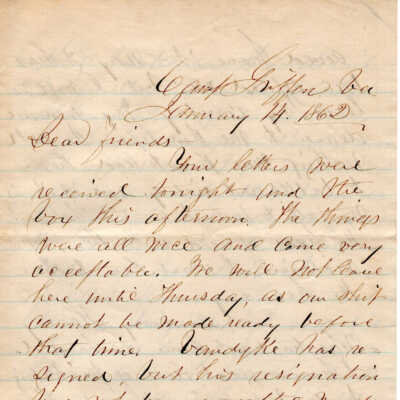 Camp Griffin Va
January 14. 1862
Dear friends
Your letters were
received tonight and the
box this afternoon. The things
were all nice and came very
acceptable. We will not leave
here until Thursday, as our ship
cannot be made ready before
that time. Vandyke has re-
signed, but his resignation